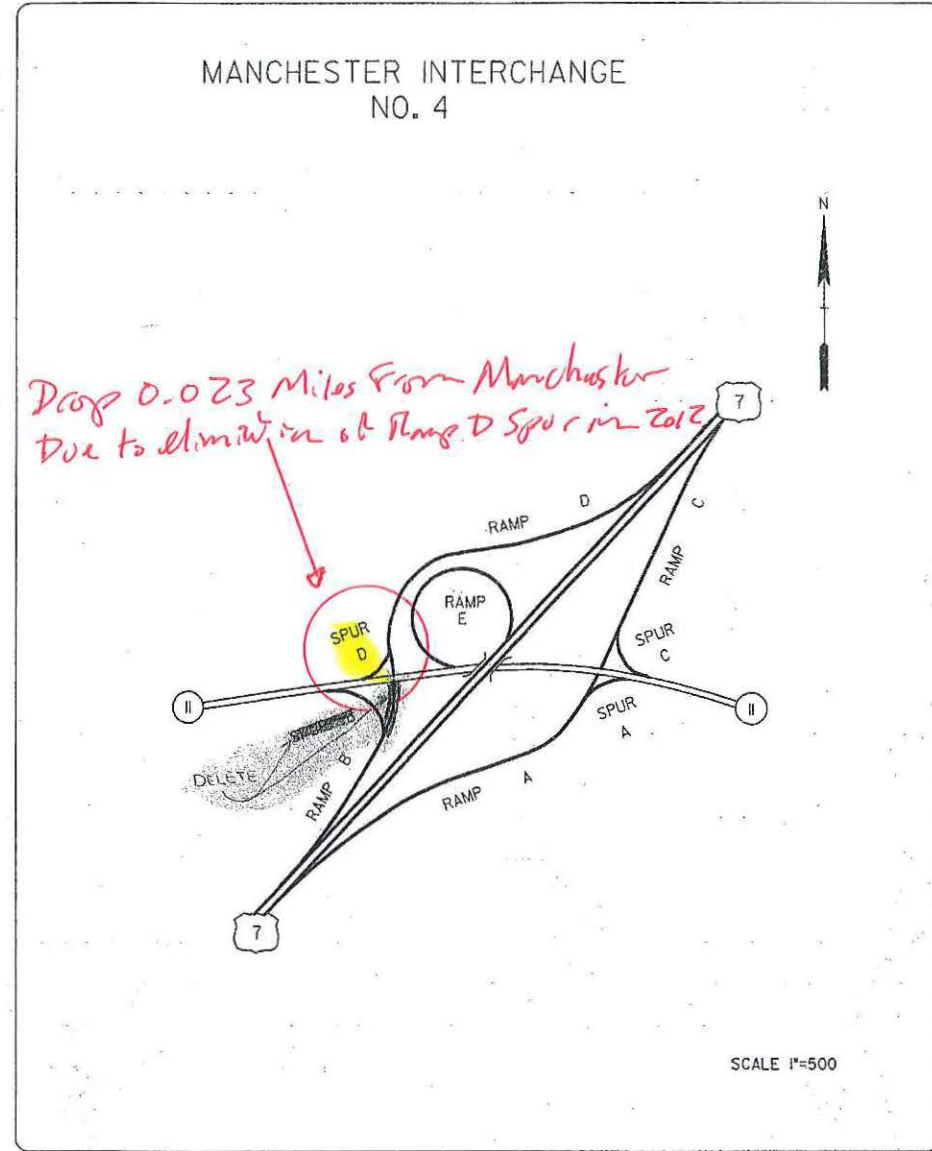 MANCHESTER INTERCHANGE
NO. 4
N
Drop 0.023 Miles From Manchester
Due to elimination of Ramp D Spur in 2012
7
RAMP D
RAMP C
RAMP
E
SPUR
D
SPUR
C
11
11
SPUR
A
SPUR B
DELETE
RAMP B
RAMP A
7
SCALE 1"=500